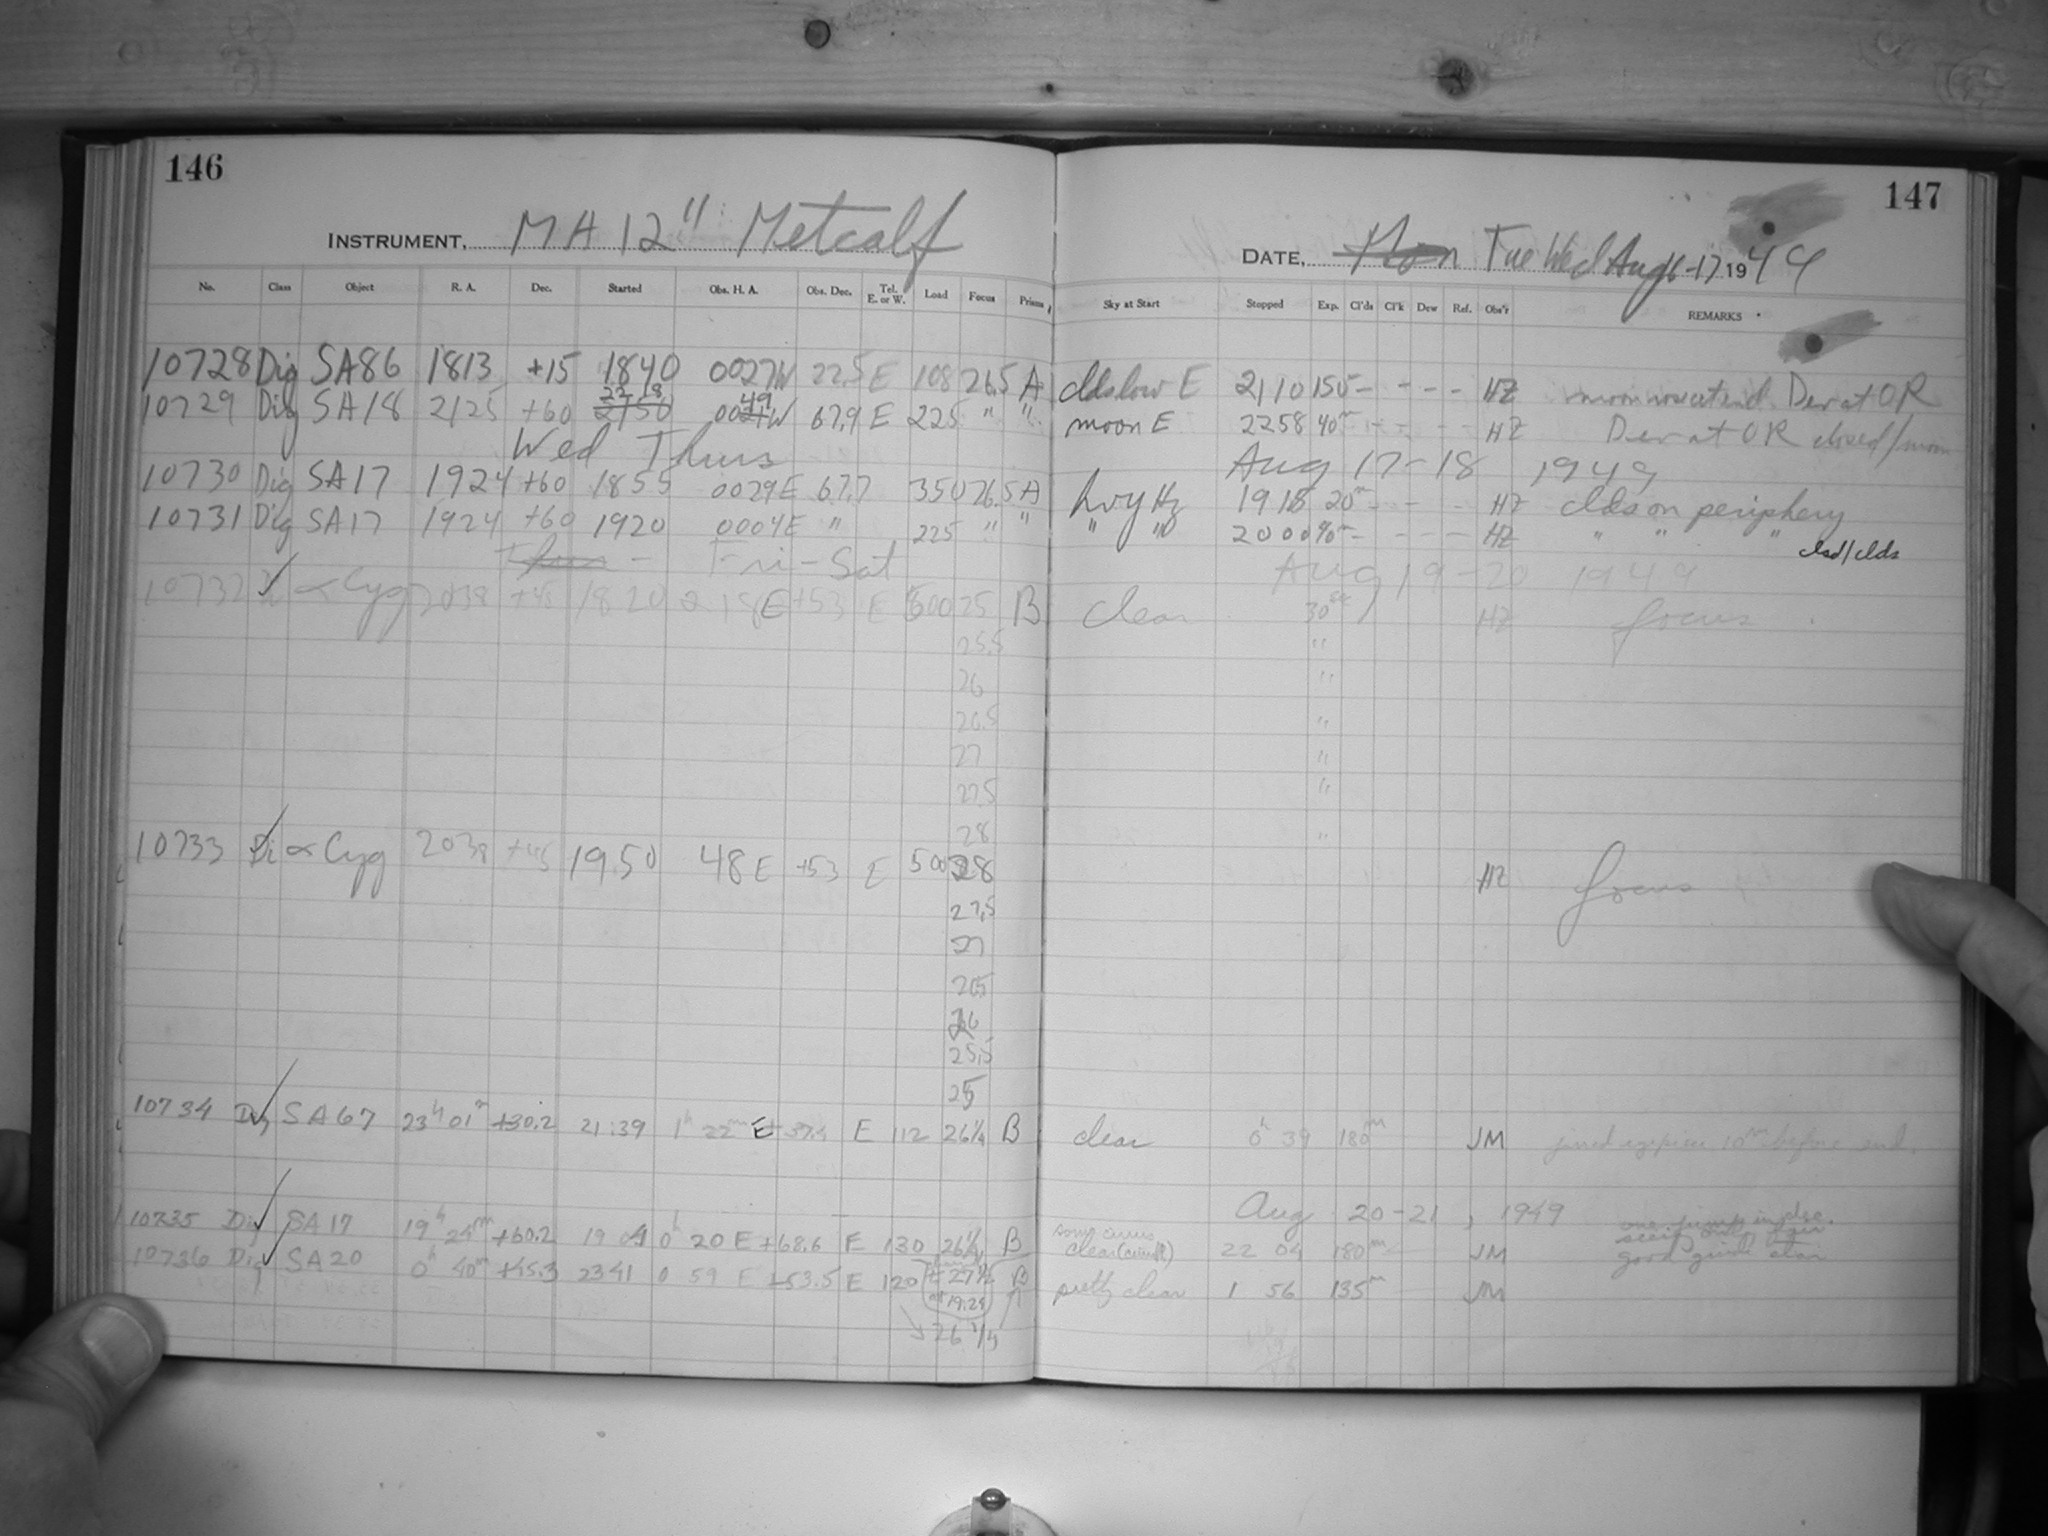 146
147
INSTRUMENT, MA 12" Metcalf
DATE, Mon Tue Wed Aug 16-17 1949
No. Class Object R. A. Dec. Started Obs. H. A. Obs. Dec. Tel. E. or W. Load Focus Prisms Sky at Start Stopped Exp. Cl'ds Cl'k Dew Ref. Obs'r REMARKS
10728 Dig SA86 1813 +15 1840 0027W 22.5 E 108 26.5 A clds low E 2110 150 - - - - HZ Dew at OR
22 18 49
10729 Dig SA18 2125 +60 2150 0021W 67.9 E 225 " " moon E 2258 40m - - - - HZ Dew at OR closed/moon
Wed Thurs Aug 17-18 1949
10730 Dig SA17 1924 +60 1855 0029E 67.7 350 26.5 A hvy Hz 1918 20m - - - HZ clds on periphery
10731 Dig SA17 1924 +60 1920 0004E " 225 " " " " 2000 40 - - - - HZ " " " clsd/clds
Thurs - Fri-Sat Aug 19-20 1949
10732 α Cyg 2038 +45 1820 2 18E +53 E 500 25 B clear 30sec HZ focus
25.5 "
26 "
26.5 "
27 "
27.5 "
28 "
10733 Di α Cyg 2038 +45 19.50 48E +53 E 500 28 HZ focus
27.5
27
26
25.5
25
10734 Dig SA67 23h 01m +30.2 21:39 1h 22m E +37.4 E 112 26¼ B clear 0h 39 180m JM 10m before end.
Aug 20-21, 1949
10735 Dig SA17 19h 24m +60.2 19 04 0h 20 E +68.6 E 130 26¼ B some cirrus clear 22 04 180m JM
10736 Dig SA20 0h 40m +45.3 2341 0 59 E +53.5 E 120 27½ B pretty clear 1 56 135m JM
at 19:24
26 1/4